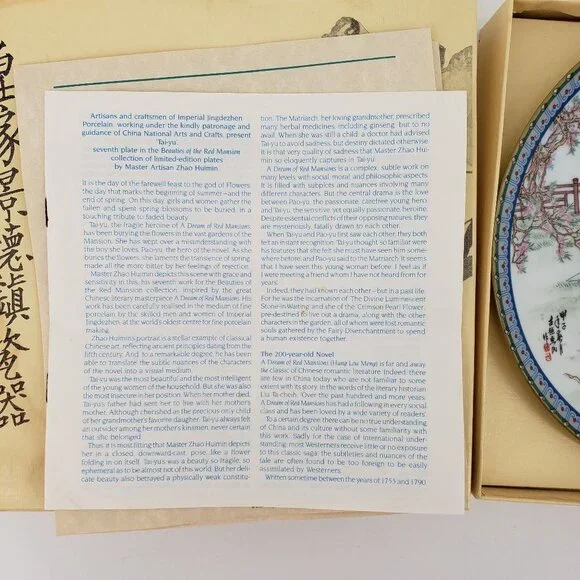 Artisans and craftsmen of Imperial Jingdezhen
Porcelain, working under the kindly patronage and
guidance of China National Arts and Crafts, present
Tai-yu
seventh plate in the Beauties of the Red Mansion
collection of limited-edition plates
by Master Artisan Zhao Huimin
It is the day of the farewell feast to the god of Flowers:
the day that marks the beginning of summer—and the
end of spring. On this day, girls and women gather the
fallen and spent blossoms to be buried, in a
touching tribute to faded beauty.
Tai-yu, the fragile heroine of A Dream of Red Mansions,
has been burying the flowers in the vast gardens of the
Mansion. She has wept over a misunderstanding with
the boy she loves, Pao-yu, the hero of the novel. As she
buries the flowers, she laments the transience of spring,
made all the more bitter by her feelings of rejection.
Master Zhao Huimin depicts this scene with grace and
sensitivity in this, his seventh work for the Beauties of
the Red Mansion collection, inspired by the great
Chinese literary masterpiece A Dream of Red Mansions. His
work has been carefully realised in the medium of fine
porcelain by the skilled men and women of Imperial
Jingdezhen, at the world's oldest centre for fine porcelain
making.
Zhao Huimin's portrait is a stellar example of classical
Chinese art, reflecting ancient principles dating from the
fifth century. And to a remarkable degree, he has been
able to translate the subtle nuances of the characters
of the novel into a visual medium.
Tai-yu was the most beautiful and the most intelligent
of the young women of the household. But she was also
the most insecure in her position. When her mother died,
Tai-yu's father had sent her to live with her mother's
mother. Although cherished as the precious only child
of her grandmother's favorite daughter, Tai-yu always felt
an outsider among her mother's kinsmen, never certain
that she belonged.
Thus, it is most fitting that Master Zhao Huimin depicts
her in a closed, downward-cast, pose, like a flower
folding in on itself. Tai-yu's was a beauty so fragile, so
ephemeral as to be almost not of this world. But her deli-
cate beauty also betrayed a physically weak constitu-
tion. The Matriarch, her loving grandmother, prescribed
many herbal medicines, including ginseng, but to no
avail. When she was still a child, a doctor had advised
Tai-yu to avoid sadness, but destiny dictated otherwise.
It is that very quality of sadness that Master Zhao Hui-
min so eloquently captures in Tai-yu.
A Dream of Red Mansions is a complex, subtle work on
many levels, with social, moral, and philosophic aspects.
It is filled with subplots and nuances involving many
different characters. But the central drama is the love
between Pao-yu, the passionate, carefree young hero
and Tai-yu, the sensitive yet equally passionate heroine.
Despite essential conflicts in their opposing natures, they
are mysteriously, fatally drawn to each other.
When Tai-yu and Pao-yu first saw each other, they both
felt an instant recognition. Tai-yu thought so familiar were
his features that she felt she must have seen him some-
where before, and Pao-yu said to the Matriarch, It seems
that I have seen this young woman before. I feel as if
I were meeting a friend whom I have not heard from for
years.
Indeed, they had known each other—but in a past life.
For he was the incarnation of The Divine Luminescent
Stone-in-Waiting and she of the Crimson Pearl Flower,
pre-destined to live out a drama, along with the other
characters in the garden, all of whom were lost romantic
souls gathered by the Fairy Disenchantment to spend
a human existence together.
The 200-year-old Novel
A Dream of Red Mansions (Hung Low Meng) is far and away
the classic of Chinese romantic literature. Indeed, there
are few in China today who are not familiar to some
extent with its story. In the words of the literary historian
Liu Ta-chieh, Over the past hundred and more years,
A Dream of Red Mansions has had a following in every social
class and has been loved by a wide variety of readers.
To a certain degree, there can be no true understanding
of China and its culture without some familiarity with
this work. Sadly for the case of international under-
standing, most Westerners receive little or no exposure
to this classic saga: the subtleties and nuances of the
tale are often found to be too foreign to be easily
assimilated by Westerners.
Written sometime between the years of 1755 and 1790
景德鎮瓷器